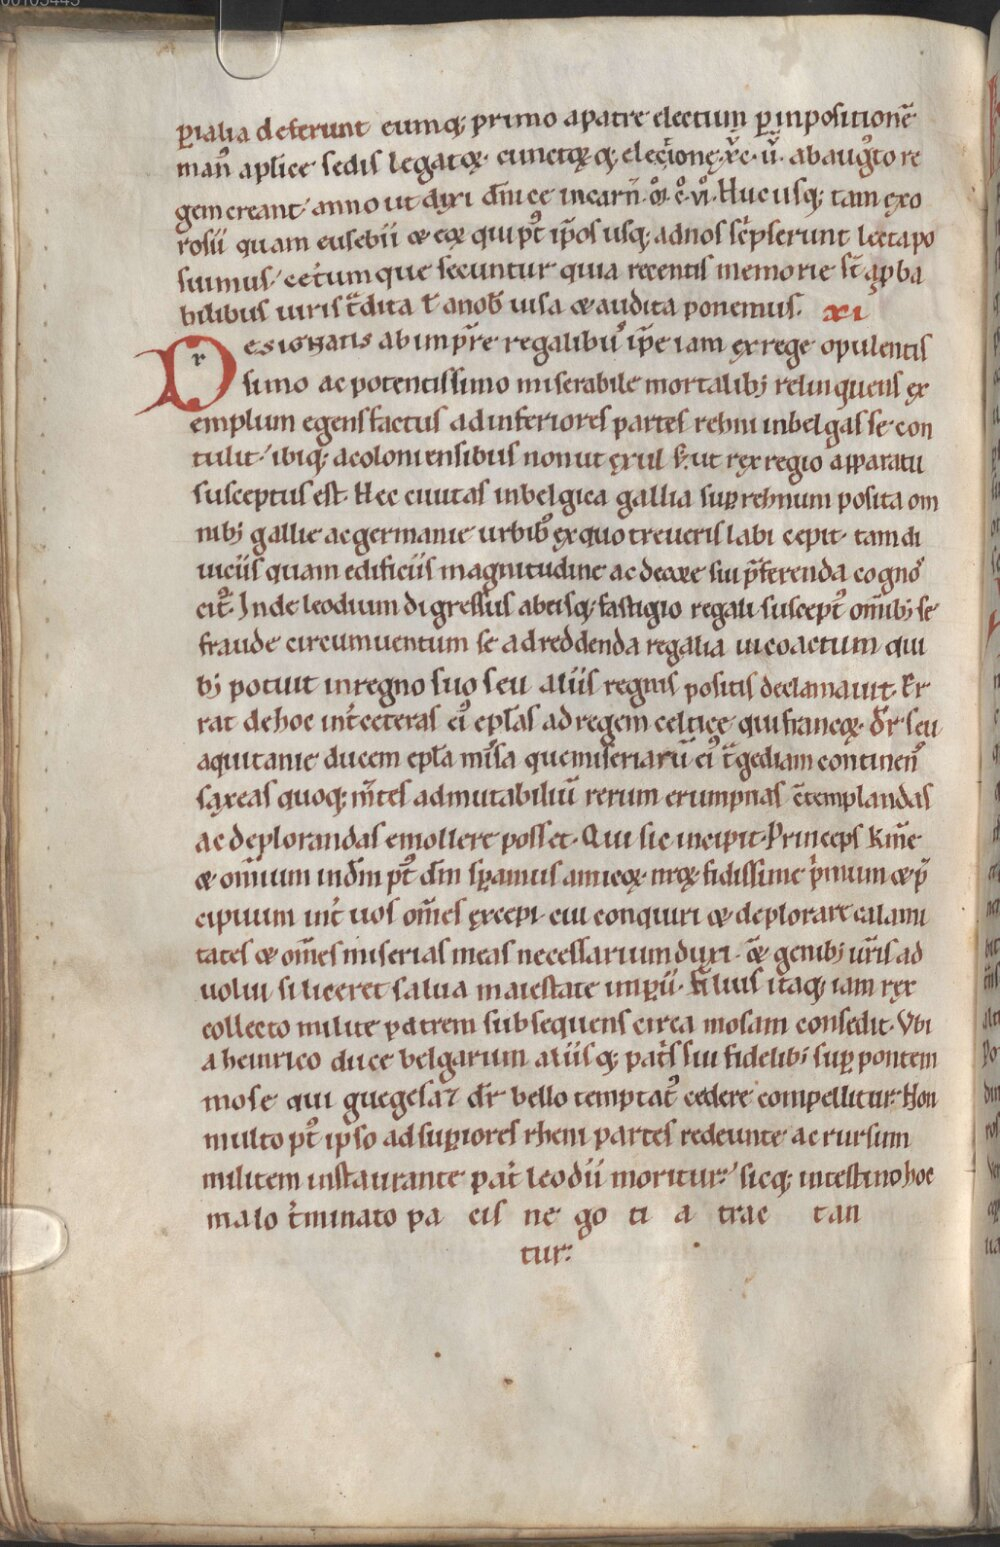 00103443
ꝑialia deferunt eumq; primo a patre electum ꝑ inpositionē
man᷒ aplice sedis legatoꝝ. cunctoꝝ q; electione xc. u. ab augto re
gem creant. anno ut dixi dnice incarn̄. ō. c̊. vi. Huc usq; tam ex o
rosii quam eusebii & eoꝝ qui pt̉ ip̄os usq; ad nos scripserunt lecta po
suimus. cet̉um que secuntur quia recentis memorie st̄ a ꝓba
bilibus viris t̄dita ł a nob̄ visa & audita ponemus. XI
Designatis ab imꝑre regalibus ip̄e iam ex rege opulentis
simo ac potentissimo miserabile mortalib; relinquens ex
emplum egens factus ad inferiores partes rehni in belgas se con
tulit. ibiq; a coloniensibus non ut exul s; ut rex regio apparatu
susceptus est. Hec ciuitas in belgica gallia suꝑ rehnum posita om
nib; gallie ac germanie urbib᷒ ex quo treueris labi cepit. tam di
uiciis quam edificiis magnitudine ac decore sui p̄ferenda cogno᷒
cit̉. Inde leodium digressus abeisq; fastigio regali suscept᷒ om̄ib; se
fraude circumuentum se ad reddenda regalia ui coactum qui
b; potuit in regno suo seu aliis regnis positis declamauit. Fer
rat de hoc int̉ ceteras ei᷒ ep̄las ad regem celtice qui francoꝝ dr̄ seu
aquitanie ducem ep̄la missa que miseriarū ei᷒ t̄gediam continen᷒
saxeas quoq; m̄tes ad mutabiliū rerum erumpnas c̄templandas
ac deplorandas emollere posset. Qui sic incipit. Princeps kme
& omnium in dm̄ pt̉ dm̄ sꝑamus amicoꝝ nroꝝ fidissime primum & p̄
cipuum int̉ uos om̄es excepi. cui conquiri & deplorare calami
tates & om̄es miserias meas necessarium duxi. & genib; uris ad
uolui si liceret salua maiestate imꝑii. Filius itaq; iam rex
collecto milite patrem subsequens circa mosam consedit. Vbi
a heinrico duce belgarum aliisq; patris sui fidelib; suꝑ pontem
mose qui guegesaz dr̄ bello temptat᷒ cedere compellitur. Non
multo pt̉ ipso ad suꝑiores rheni partes redeunte ac rursum
militem instaurante pat̉ leodii moritur. sicq; intestino hoc
malo t̉minato pa cis ne go ti a trac tan
tur.